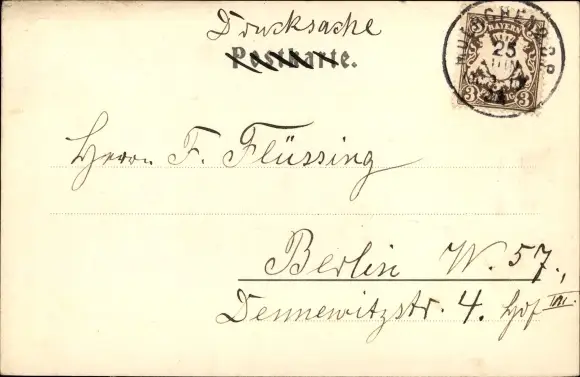 Drucksache
Postkarte.
BAYERN
25
3 3
Herrn F. Flüssing
Berlin W. 57.,
Dennewitzstr. 4. Hof III.